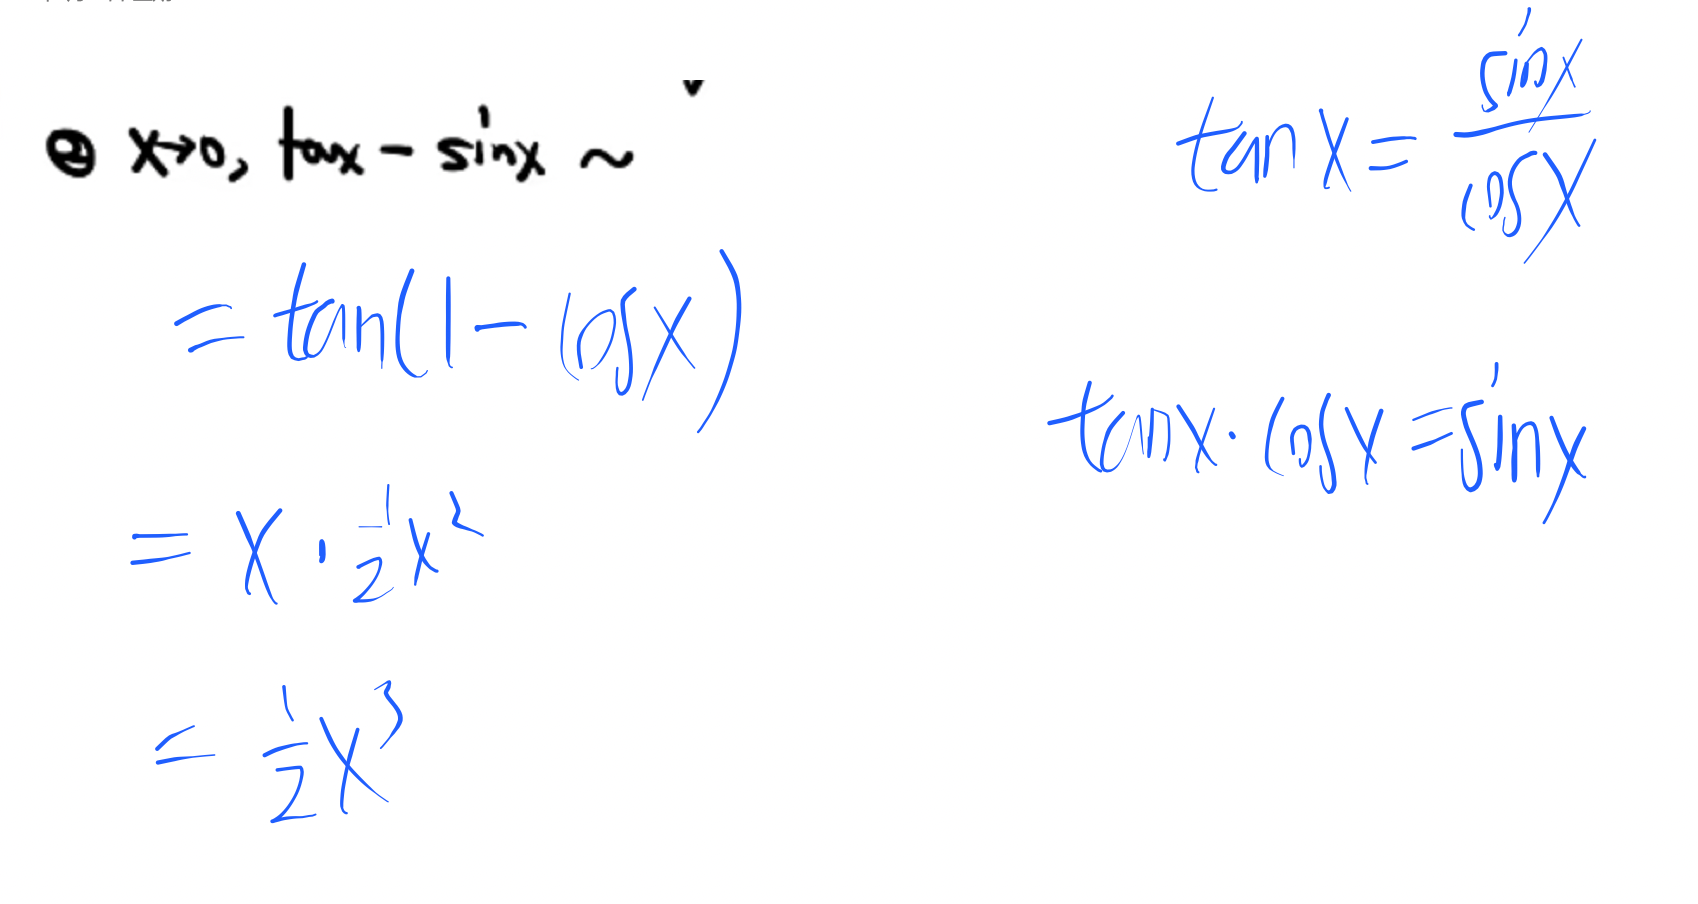 ② x→0, tanx - sinx ~
= tan(1 - cosx)
= x · 1/2 x²
= 1/2 x³
tan x = sinx/cosx
tanx · cosx = sinx